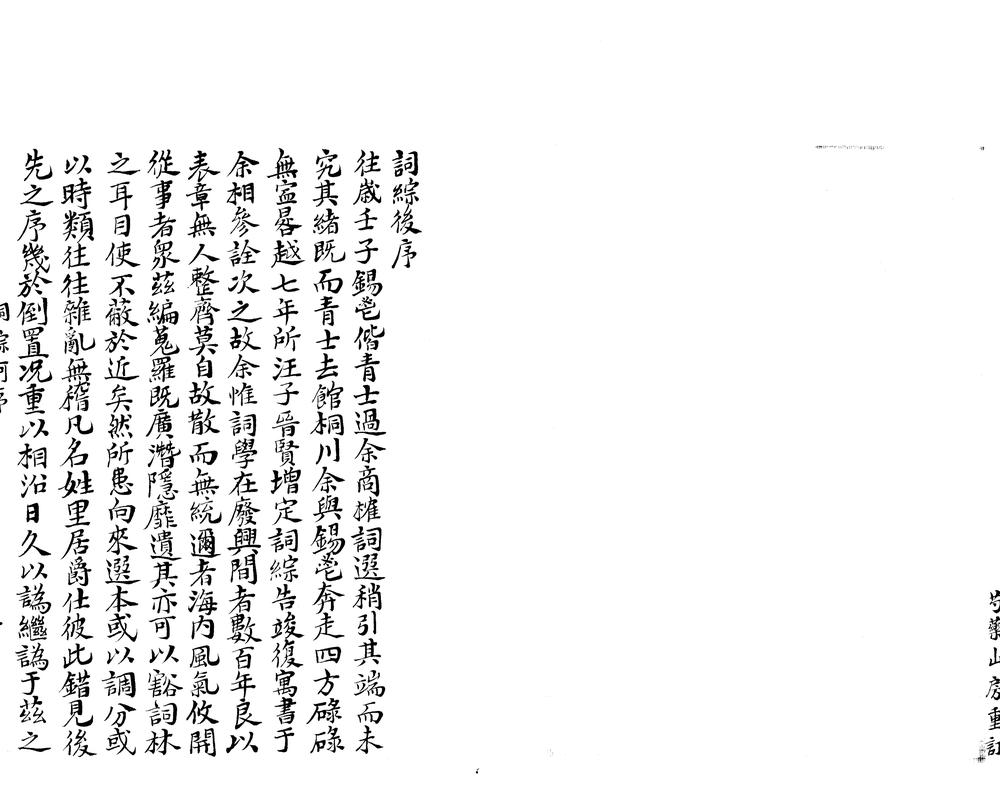 詞綜後序
往歲壬子錫鬯偕青士過余商榷詞選稍引其端而未
究其緒既而青士去館桐川余與錫鬯奔走四方碌碌
無寍晷越七年所汪子晉賢增定詞綜告竣復寓書于
余相參詮次之故余惟詞學在廢興間者數百年良以
表章無人整齊莫自故散而無統邇者海內風氣攸開
從事者衆茲編蒐羅既廣潛隱靡遺其亦可以豁詞林
之耳目使不蔽於近矣然所患向來選本或以調分或
以時類往往雜亂無稽凡名姓里居爵仕彼此錯見後
先之序幾於倒置况重以相沿日久以譌繼譌于茲之